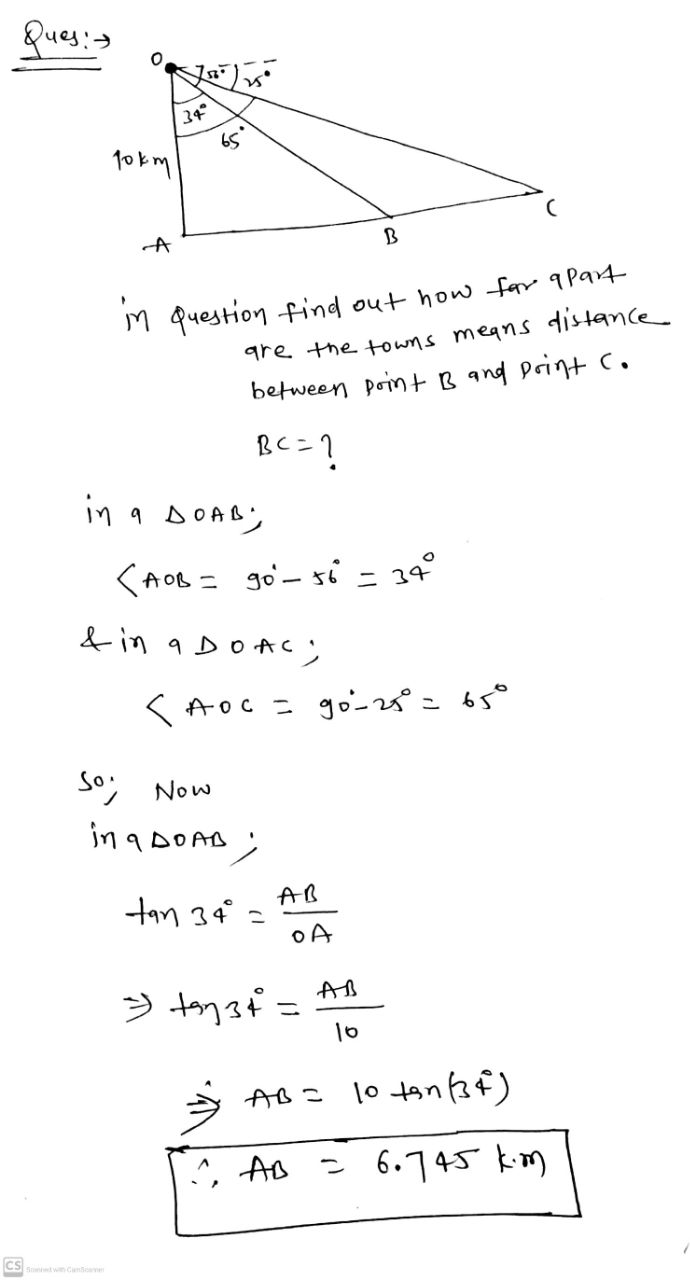 Ques:→
O
56° 25°
34°
65°
10km
A
B
C
in question find out how far apart
are the towns means distance
between point B and point C.
BC = ?
in a ΔOAB;
<AOB = 90° - 56° = 34°
& in a ΔOAC;
<AOC = 90° - 25° = 65°
So; Now
in a ΔOAB;
tan 34° = AB
OA
⇒ tan 34° = AB
10
⇒ AB = 10 tan(34°)
∴ AB = 6.745 k.m
CS Scanned with CamScanner